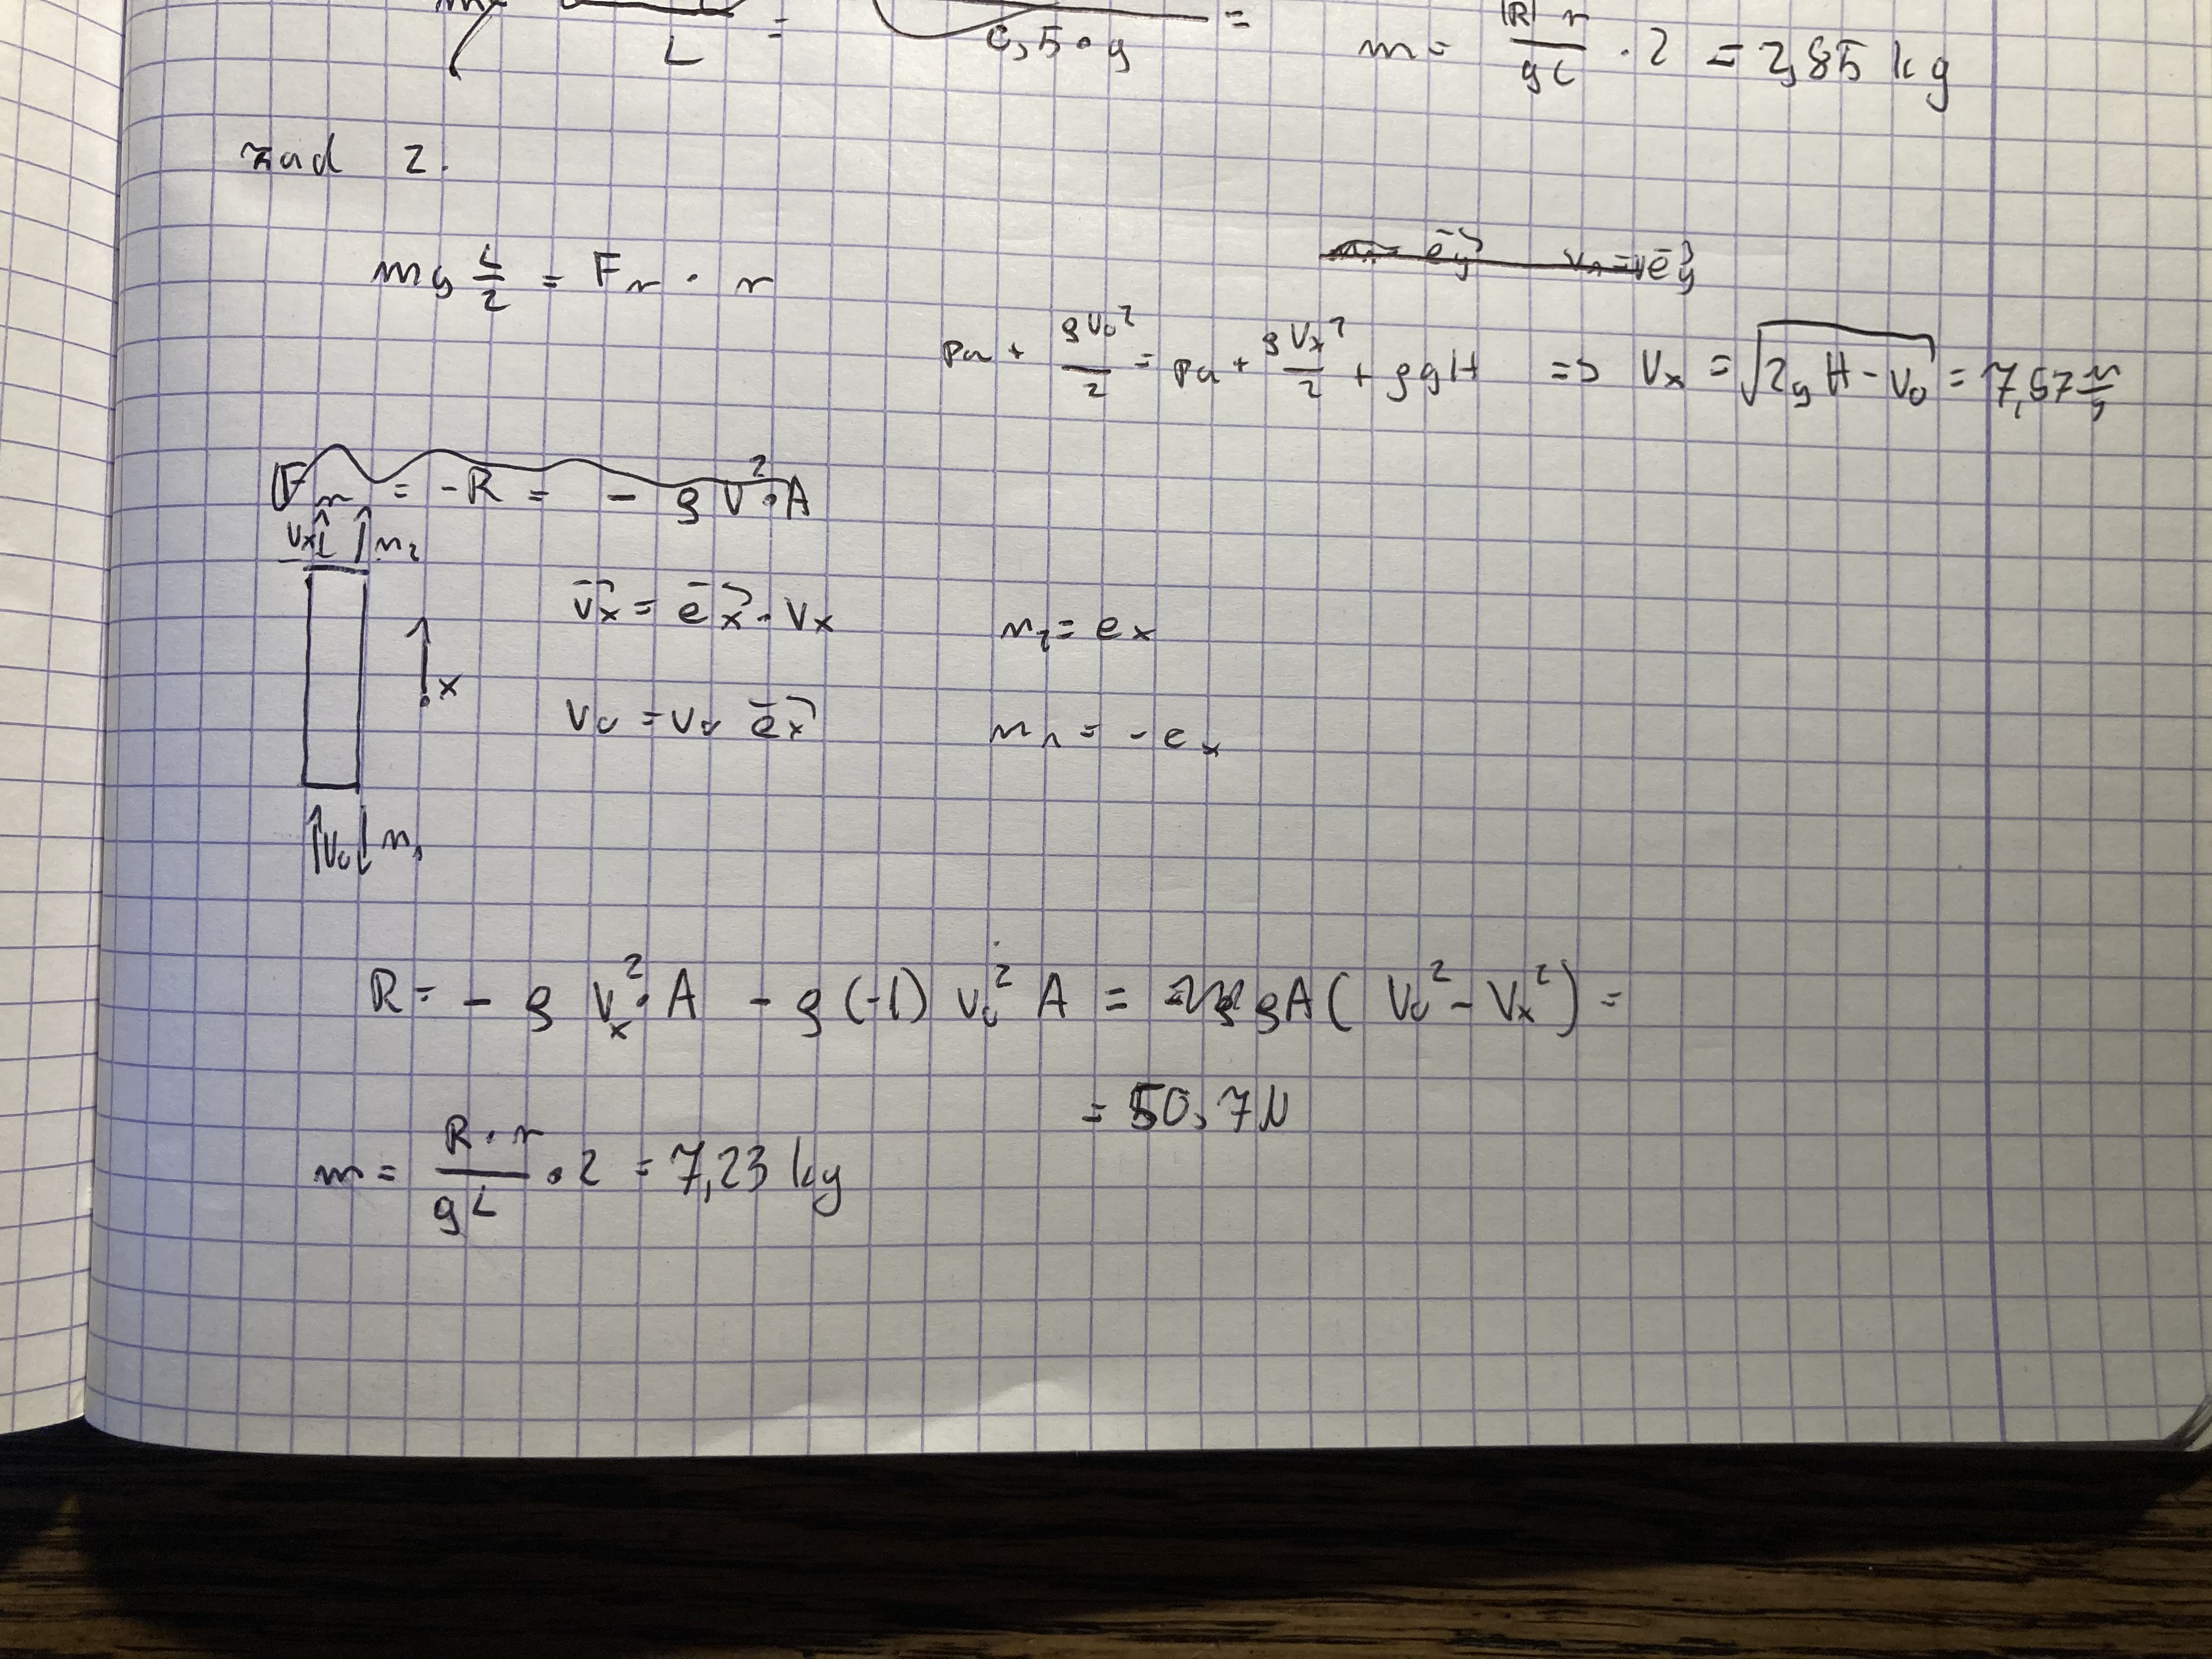 L =
0,5 · g =
m = |R| r / gL · 2 = 2,85 kg
zad 2.
mg L/2 = F r · r
Pa + ρV₀²/2 = Pa + ρVx²/2 + ρgH => Vx = √(2gH - V₀) = 7,57 m/s
= -R = - ρV²·A
Vx n₂
x
V⃗x = e⃗x · Vx n₂ = ex
V₀ = V₀ e⃗x n₁ = - ex
V₀ n₁
R = - ρ Vx² · A - ρ (-1) V₀² A = ρA (V₀² - Vx²) =
= 50,7N
m = R·r / gL · 2 = 7,23 kg